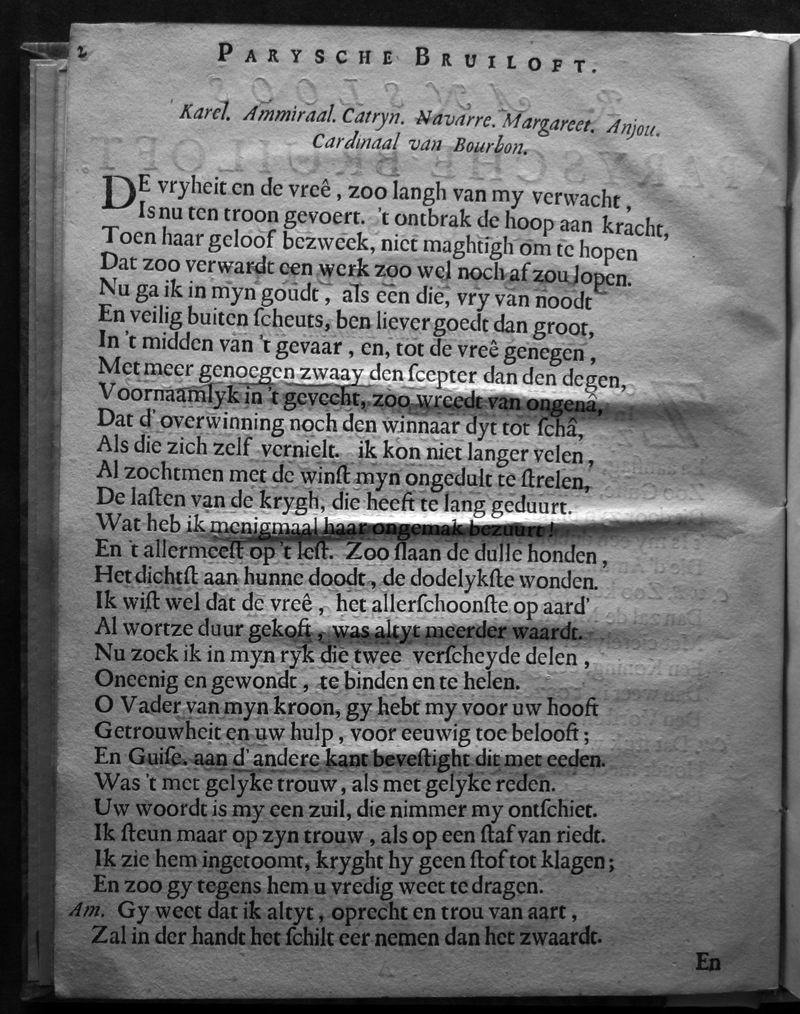 2 PARYSCHE BRUILOFT.
Karel. Ammiraal. Catryn. Navarre. Margareet. Anjou.
Cardinaal van Bourbon.
DE vryheit en de vreê, zoo langh van my verwacht,
Is nu ten troon gevoert. 't ontbrak de hoop aan kracht,
Toen haar geloof bezweek, niet maghtigh om te hopen
Dat zoo verwardt een werk zoo wel noch af zou lopen.
Nu ga ik in myn goudt, als een die, vry van noodt
En veilig buiten ſcheuts, ben liever goedt dan groot,
In 't midden van 't gevaar, en, tot de vreê genegen,
Met meer genoegen zwaay den ſcepter dan den degen,
Voornaamlyk in 't gevecht, zoo wreedt van ongenâ,
Dat d' overwinning noch den winnaar dyt tot ſchâ,
Als die zich zelf vernielt. ik kon niet langer velen,
Al zochtmen met de winſt myn ongedult te ſtrelen,
De laſten van de krygh, die heeft te lang geduurt.
Wat heb ik menigmaal haar ongemak bezuurt!
En 't allermeeſt op 't leſt. Zoo ſlaan de dulle honden,
Het dichtſt aan hunne doodt, de dodelykſte wonden.
Ik wiſt wel dat de vreê, het allerſchoonſte op aard'
Al wortze duur gekoft, was altyt meerder waardt.
Nu zoek ik in myn ryk die twee verſcheyde delen,
Oneenig en gewondt, te binden en te helen.
O Vader van myn kroon, gy hebt my voor uw hooft
Getrouwheit en uw hulp, voor eeuwig toe belooft;
En Guiſe. aan d' andere kant beveſtight dit met eeden.
Was 't met gelyke trouw, als met gelyke reden.
Uw woordt is my een zuil, die nimmer my ontſchiet.
Ik ſteun maar op zyn trouw, als op een ſtaf van riedt.
Ik zie hem ingetoomt, kryght hy geen ſtof tot klagen;
En zoo gy tegens hem u vredig weet te dragen.
Am. Gy weet dat ik altyt, oprecht en trou van aart,
Zal in der handt het ſchilt eer nemen dan het zwaardt.
En